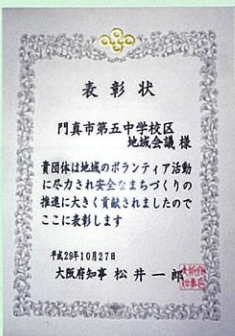 表彰状
門真市第五中学校区
地域会議 様
貴団体は地域のボランティア活動
に尽力され安全なまちづくりの
推進に大きく貢献されましたので
ここに表彰します
平成29年10月27日
大阪府知事 松井一郎